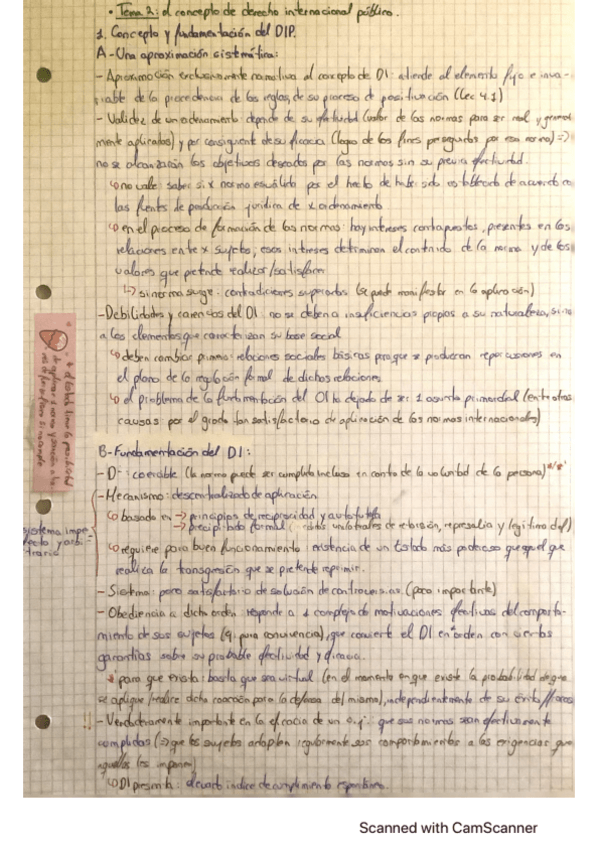 • Tema 2: el concepto de derecho internacional público.
1. Concepto y fundamentación del DIP.
A - Una aproximación sistemática:
- Aproximación exclusivamente normativa al concepto de DI: atiende al elemento fijo e inva-
riable de la procedencia de las reglas, de su proceso de positivación (Lec 4.1)
- Validez de un ordenamiento depende de su efectividad (valor de las normas para ser real y
mente aplicadas) y por consiguiente de su eficacia (logro de los fines perseguidos por esa norma) =>
no se alcanzarán los objetivos deseados por las normas sin su previa efectividad.
↳ no vale: saber si x norma es válida por el hecho de haber sido establecida de acuerdo a
las fuentes de producción jurídica de x ordenamiento
↳ en el proceso de formación de las normas: hay intereses contrapuestos, presentes en las
relaciones entre x sujetos, esos intereses determinan el contenido de la norma y de los
valores que pretende realizar/satisfacer
↳ si norma surge: contradicciones superadas (se puede manifestar en la aplicación)
- Debilidades y carencias del DI: no se deben a insuficiencias propias a su naturaleza, sino
a los elementos que caracterizan su base social
↳ deben cambiar primero: relaciones sociales básicas para que se produzcan repercusiones en
el plano de la regulación formal de dichas relaciones
↳ el problema de la fundamentación del DI ha dejado de ser 1 asunto primordial (entre otras
causas por el grado tan satisfactorio de aplicación de las normas internacionales)
B - Fundamentación del DI:
- D = coercible (la norma puede ser cumplida incluso en contra de la voluntad de la persona)
- Mecanismo: descentralizado de aplicación
↳ basado en → principios de reciprocidad y autotutela
→ formal (unilaterales de retorsión, represalia y legítima def)
sistema impe-
fecto y arbi-
trario
↳ requiere para buen funcionamiento: existencia de un Estado más poderoso que aquel que
realiza la transgresión que se pretende reprimir.
- Sistema: poco satisfactorio de solución de controversias (poco importante)
- Obediencia a dicho orden responde a 1 complejo de motivaciones efectivas del comporta-
miento de sus sujetos (q. pura conveniencia), que convierte el DI en orden con ciertas
garantías sobre su probable efectividad y eficacia.
* para que exista: basta que sea virtual (en el momento en que existe la probabilidad de que
se aplique/realice dicha coacción para la defensa del mismo), independientemente de su éxito/fracaso
!! - Verdaderamente importante en la eficacia de un o.j.: que sus normas sean efectivamente
cumplidas (=> que los sujetos adapten regularmente sus comportamientos a las exigencias que
aquellas les imponen)
↳ DI presenta: elevado índice de cumplimiento espontáneo.
Scanned with CamScanner